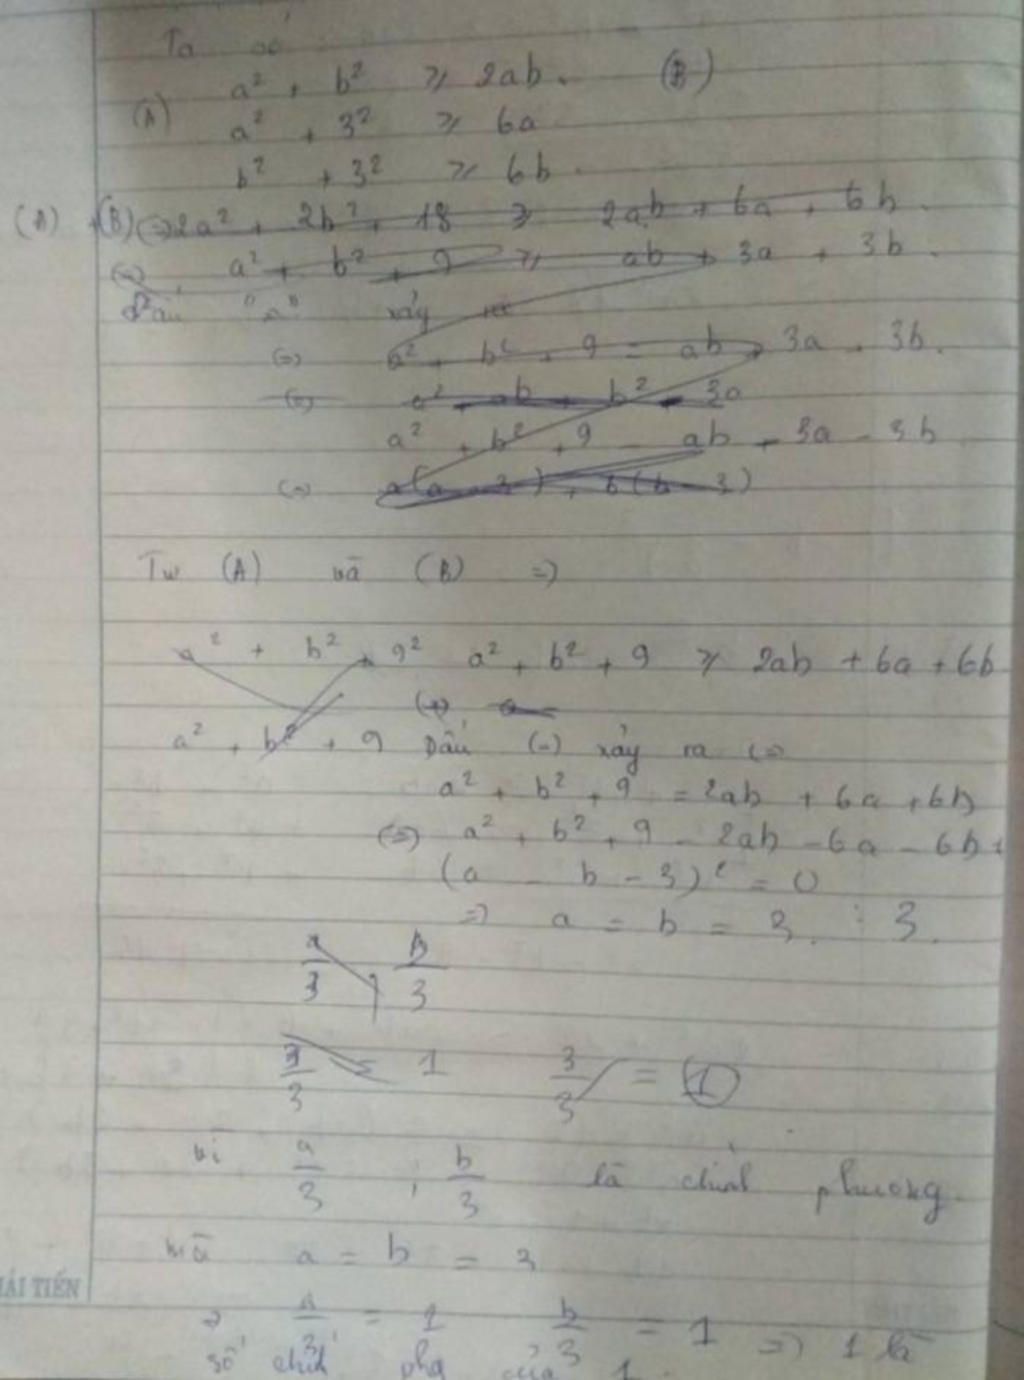 Ta có
a² + b² ≥ 2ab. (B)
(A) a² + 3² ≥ 6a
b² + 3² ≥ 6b.
(A) + (B) (=) 2a² + 2b² + 18 ≥ 2ab + 6a + 6b.
(=) a² + b² + 9 ≥ ab + 3a + 3b.
dấu "=" xảy ra
(=) a² + b² + 9 = ab + 3a + 3b.
(=) a² - ab + b² - 3a
a² + b² + 9 - ab - 3a - 3b
(=) a(a - 3) + b(b - 3)
Từ (A) và (B) =)
a² + b² + 9² a² + b² + 9 ≥ 2ab + 6a + 6b
a² + b² + 9 Dấu (=) xảy ra (=
a² + b² + 9 = 2ab + 6a + 6b
(=) a² + b² + 9 - 2ab - 6a - 6b
(a - b - 3)² = 0
=) a = b = 3. ⋮ 3.
a/3 , b/3
3/3 = 1 3/3 = 1
vì a/3 , b/3 là chính phương
mà a = b = 3
a/3 = 1 b/3 = 1 =) 1 là
số chính của 1